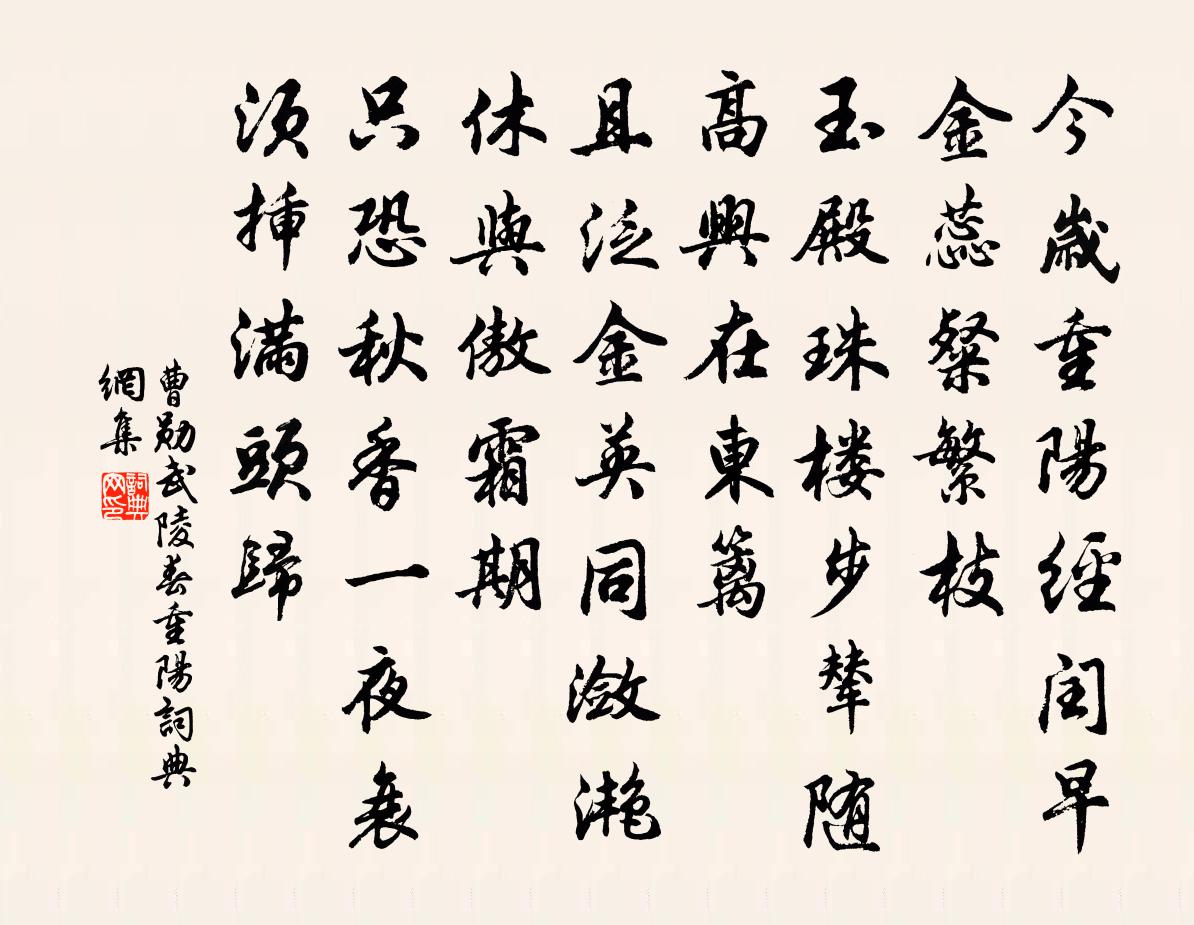 今歲重陽經閏早
金蕊粲繁枝
玉殿珠楼步輦随
高興在東籬
且泛金英同瀲灧
休與傲霜期
只恐秋香一夜衰
須挿滿頭歸
曹勛武陵春重陽詞典
網集
詞典
网印